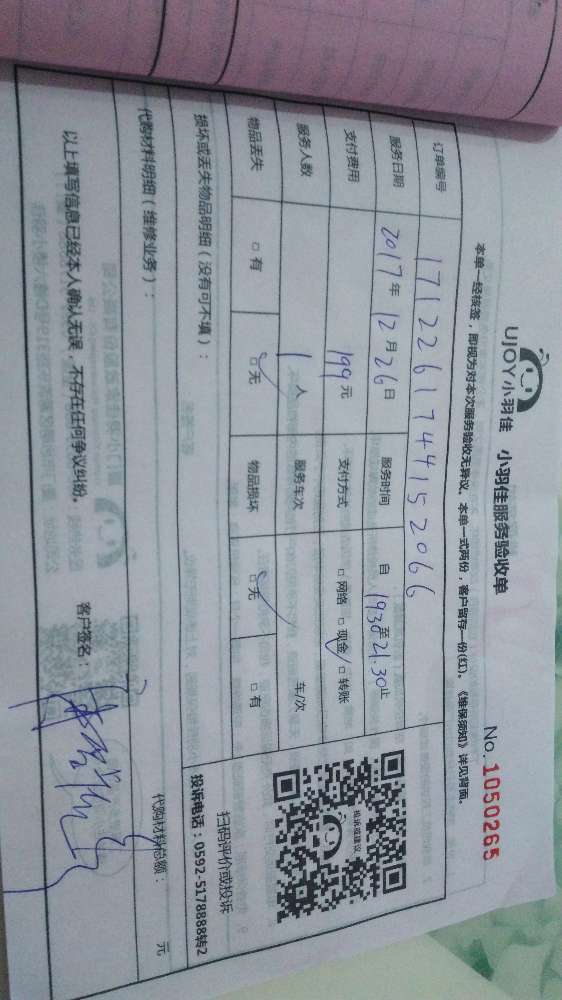 UJOY小羽佳 小羽佳服务验收单
No. 1050265
本单一经核签，即视为对本次服务验收无异议。本单一式两份，客户留存一份(红)。《维保须知》详见背面。
订单编号 1712261744152066
服务日期 2017年12月26日 服务时间 自1930至21.30止
支付费用 199元 支付方式 □网络 □现金✓ □转账
服务人数 1人 服务车次 车/次
物品丢失 □有 □无✓ 物品损坏 □无✓ □有
损坏或丢失物品明细（没有可不填）：
代购材料明细（维修业务）： 代购材料总额： 元
以上填写信息已经本人确认无误，不存在任何争议纠纷。 客户签名：
投诉或建议
扫码评价或投诉
投诉电话：0592-5178888转2